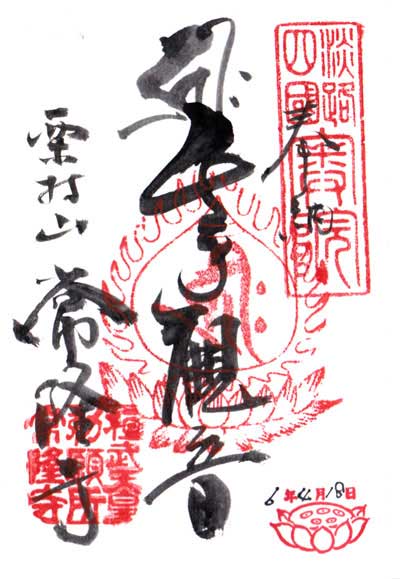 淡路
四國
奉納
千手觀音
栗村山 常隆寺
桓武天皇
願所
常隆寺
6年4月18日